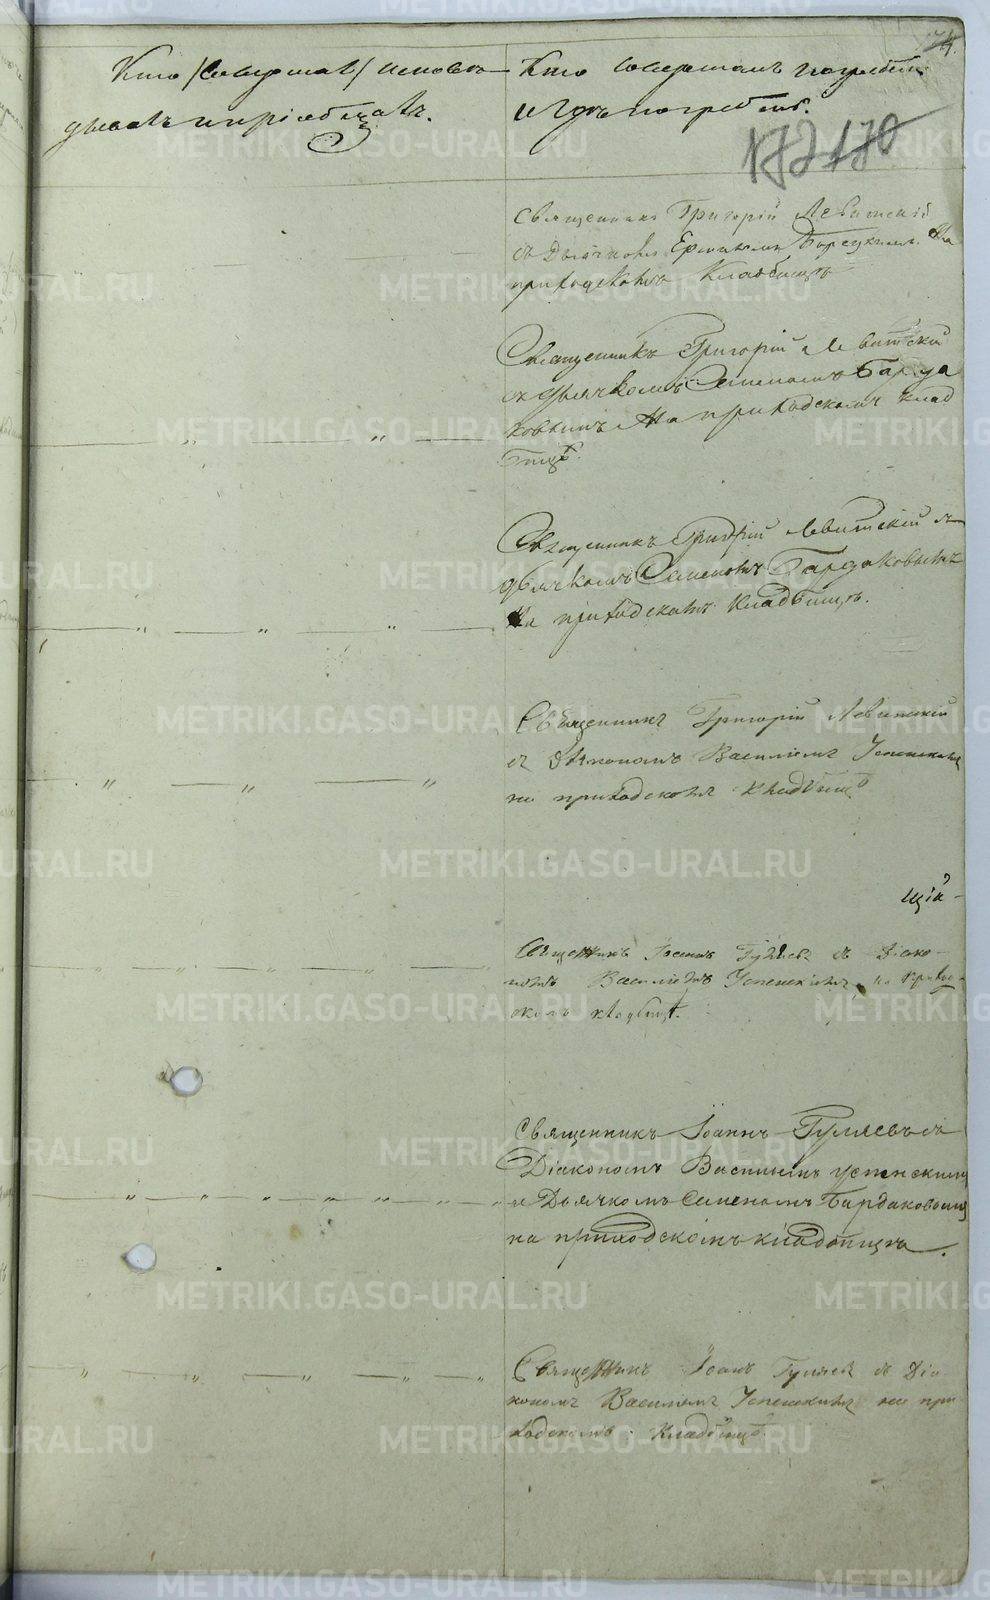 174.
Кто /совершал/ исповѣ-
дывалъ и пріобщалъ.
Кто совершалъ погребеніе
и гдѣ погребены.
172 170
Священникъ Григорій Левитскій
съ Дьячкомъ На
приходскомъ Кладбищѣ
Священникъ Григорій Левитскій
съ дьячкомъ Семеномъ Барда
ковымъ На приходскомъ клад
бищѣ.
Священникъ Григорій Левитскій съ
дьячкомъ Семеномъ Бардаковымъ
На приходскомъ Кладбищѣ.
Священникъ Григорій Левитскій
съ Діякономъ Василіемъ Успенскимъ
на приходскомъ Кладбищѣ
ція-
Священникъ Іоаннъ Гуляевъ съ Діако-
номъ Василіемъ Успенскимъ, на прихо-
скомъ кладбищѣ.
Священникъ Іоаннъ Гуляевъ съ
Діакономъ Василіемъ Успенскимъ
и Дьячкомъ Семеномъ Бардаковымъ
на приходскомъ кладбищѣ.
Священникъ Іоанъ Гуляевъ съ Діа
кономъ Василіемъ Успенскимъ на при
ходскомъ Кладбищѣ.
METRIKI.GASO-URAL.RU